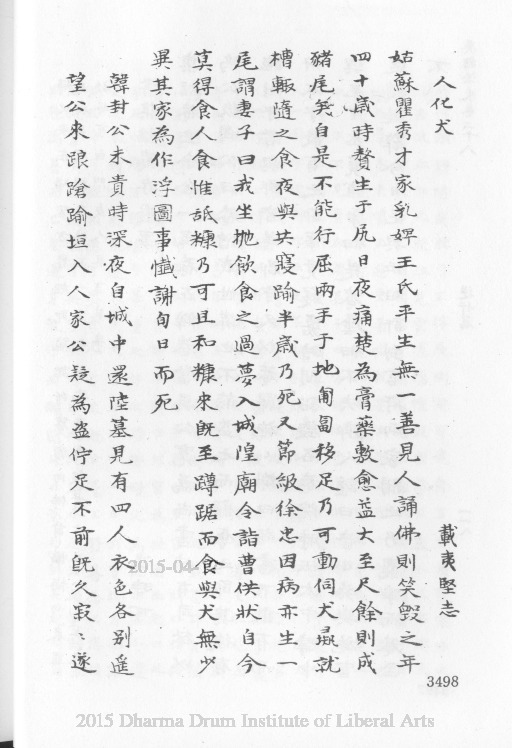 人化犬
載夷堅志
姑蘇瞿秀才家乳婢王氏平生無一善見人誦佛則笑毀之年
四十歲時贅生于尻日夜痛楚為膏藥敷愈益大至尺餘則成
豬尾矣自是不能行屈兩手于地匍匐移足乃可動伺犬彘就
槽輒隨之食夜與共寢踰半歲乃死又節級徐忠因病亦生一
尾謂妻子曰我坐拋飲食之過夢入城隍廟令詣曹供狀自今
莫得食人食惟舐糠乃可且和糠來旣至蹲踞而食與犬無少
異其家為作浮圖事懺謝旬日而死
韓封公未貴時深夜自城中還陸墓見有四人衣色各別遥
望公來踉蹌踰垣入人家公疑為盜佇足不前旣久寂〻遂
3498
2015-04-
2015 Dharma Drum Institute of Liberal Arts